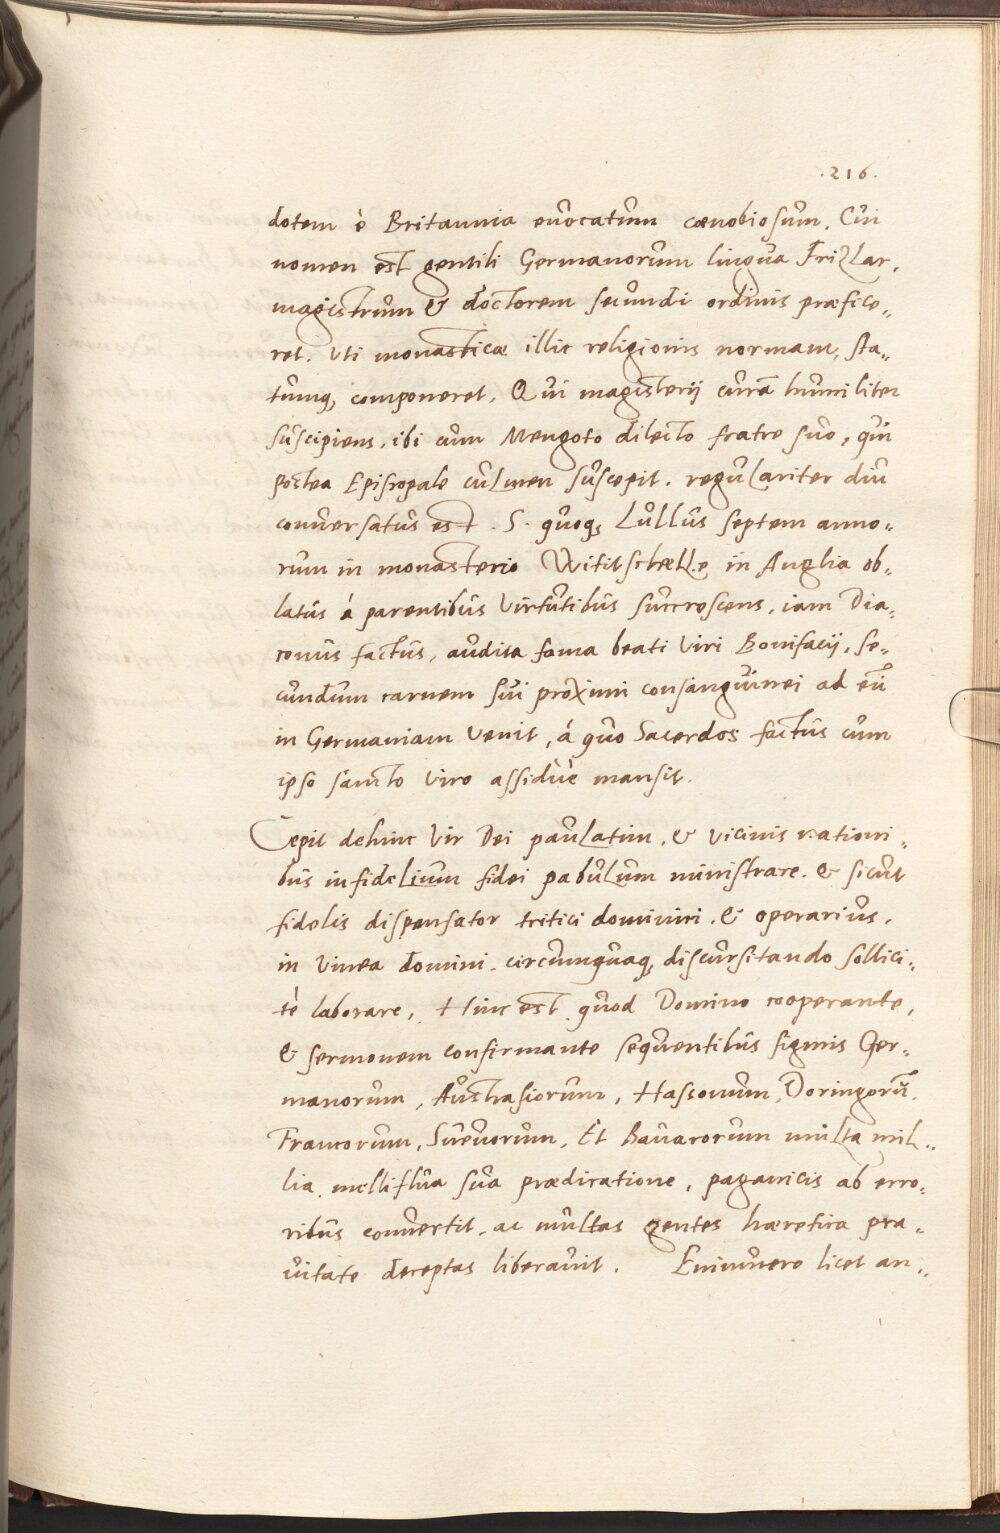 .216.
dotem è Britannia euocatum cœnobiosum. Cui
nomen est gentili Germanorum lingua Frizlar,
magistrum & doctorem secundi ordinis præfice„
ret. Vti monasticæ illic religionis normam, sta„
tumq, componeret. Qui magisterij curā humiliter
suscipiens, ibi cum Mengoto dilecto fratre suo, qui
postea Episcopale culmen suscepit. regulariter diu
conuersatus est. S. quoq, Lullus septem anno„
rum in monasterio Wititschelle in Anglia ob„
latus á parentibus Virtutibus succrescens, iam Dia„
conus factus, audita fama beati Viri Bonifacij, se„
cundum carnem sui proximi consanguinei ad eū
in Germaniam venit, á quo Sacerdos factus cum
ipso sancto viro assiduè mansit.
Cepit dehinc Vir Dei paulatim, & vicinis nationi„
bus infidelium fidei pabulum ministrare. & sicut
fidelis dispensator tritici dominici. & operarius,
in Vinea domini circumquaq, discursitando sollici„
tè laborare, Hinc est quod Domino cooperante,
& sermonem confirmante sequentibus signis Ger„
manorum, Austrasiorum, Hassonum, Doringorū,
Francorum, Sueuorum, Et Bauarorum multa mil„
lia melliflua sua prædicatione, paganicis ab erro„
ribus conuertit, ac multas gentes hæretica pra„
uitate deceptas liberauit. Enimuero licet an„